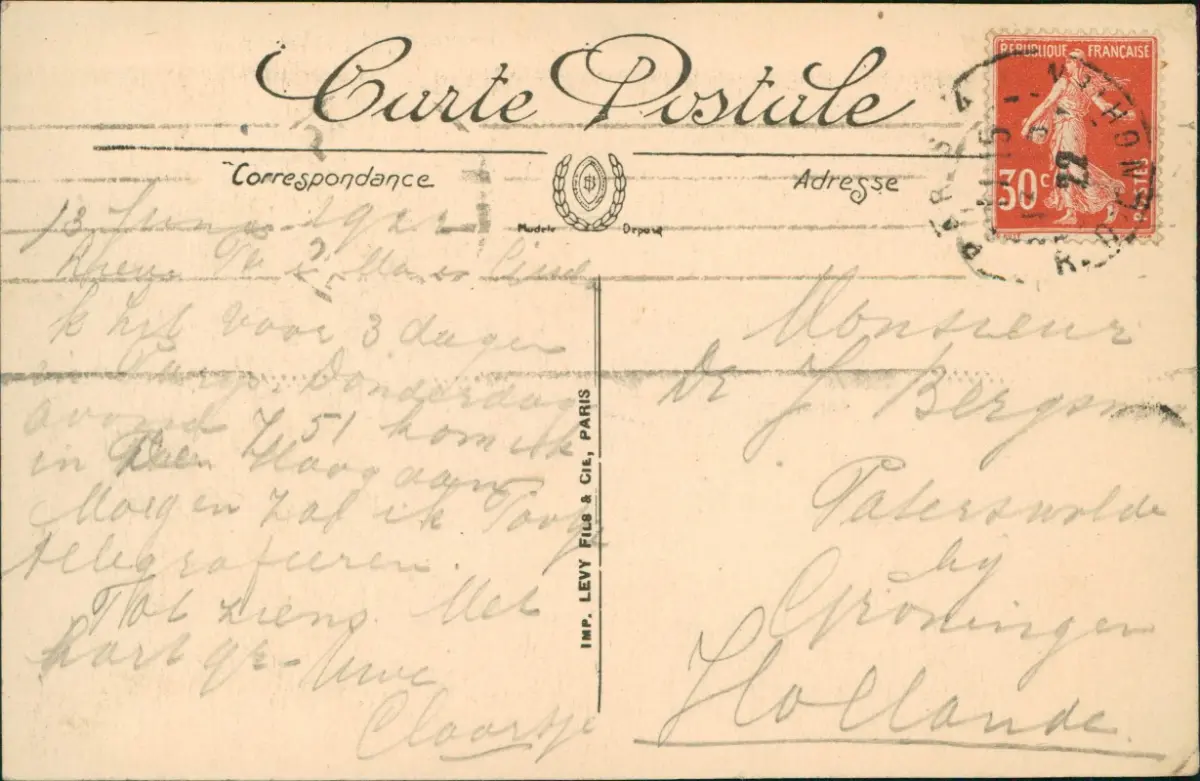 Carte Postale
Correspondance
Adresse
Modèle Déposé
RÉPUBLIQUE FRANÇAISE
30c
POSTES
PARIS
22
13 Juni 1922
k heb voor 3 dagen
in Donderdag
avond 7 51 kom ik
in Den Haag aan
Morgen zal ik
telegrafieren.
Tot ziens Met
hart gr- Uwe
Claartje
IMP. LEVY FILS & CIE, PARIS
Monsieur
Dr J. Bergsma
Paterswolde
by
Groningen
Hollande